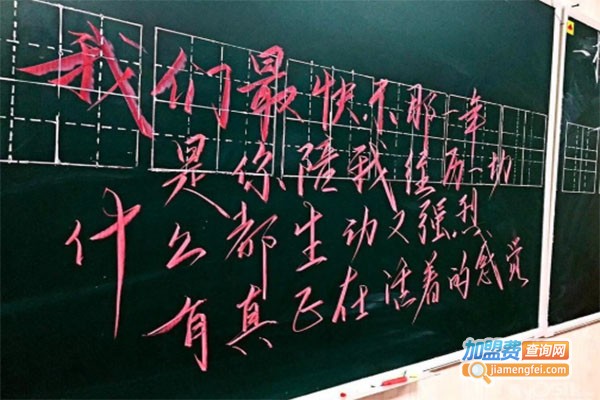 我们最快乐那一年
是你陪我经历一切
什么都生动又强烈
有真正在活着的感觉
加盟费查询网
jiamengfei.com